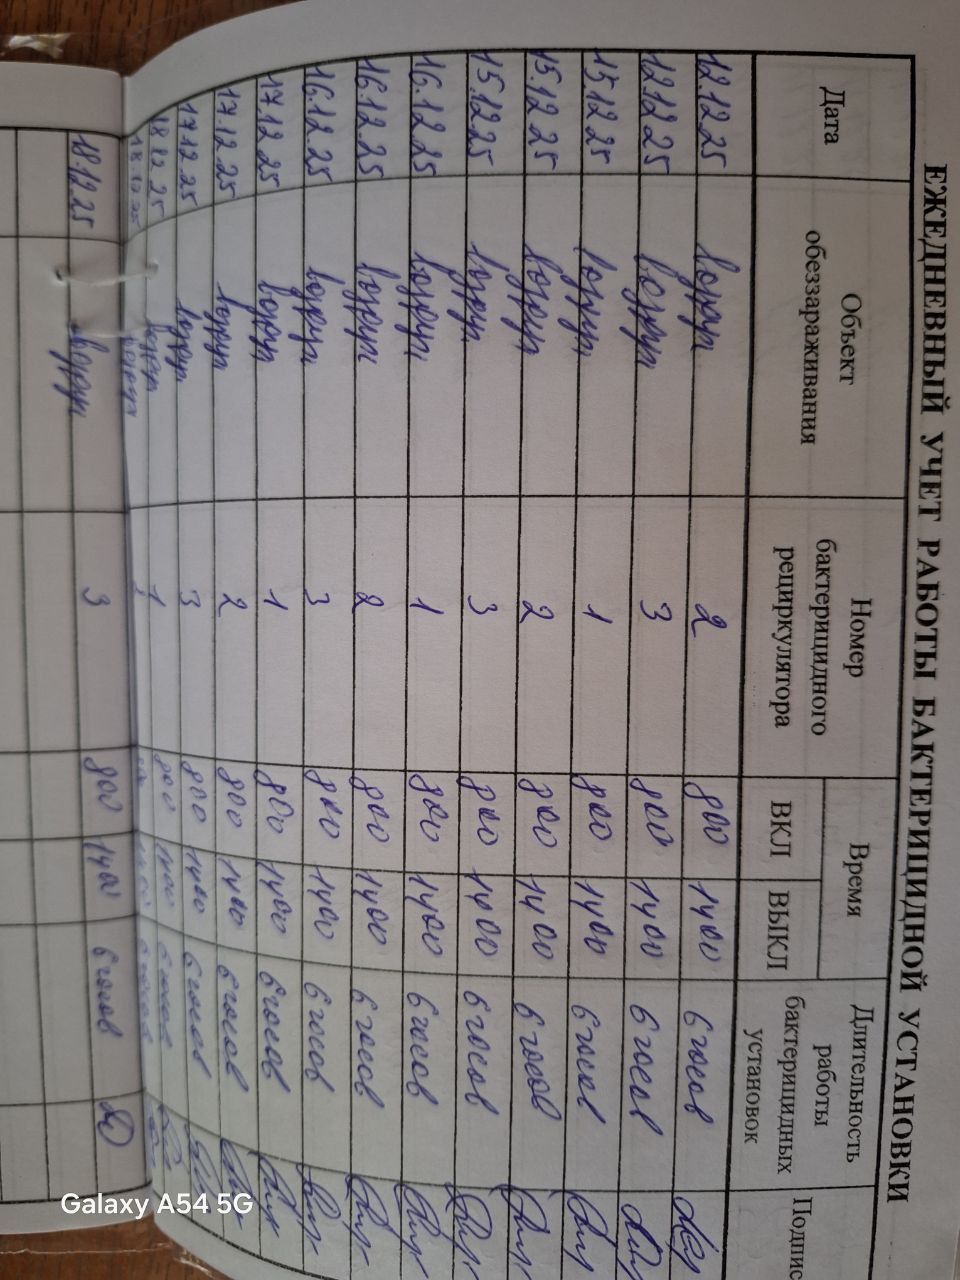 ЕЖЕДНЕВНЫЙ УЧЕТ РАБОТЫ БАКТЕРИЦИДНОЙ УСТАНОВКИ
Дата
Объект
обеззараживания
Номер
бактерицидного
рециркулятора
Время
ВКЛ
ВЫКЛ
Длительность
работы
бактерицидных
установок
Подпис
12.12.25 воздух 2 800 1400 6 часов
12.12.25 воздух 3 800 1400 6 часов
15.12.25 воздух 1 800 1400 6 часов
15.12.25 воздух 2 800 1400 6 часов
15.12.25 воздух 3 800 1400 6 часов
16.12.25 воздух 1 800 1400 6 часов
16.12.25 воздух 2 800 1400 6 часов
16.12.25 воздух 3 800 1400 6 часов
17.12.25 воздух 1 800 1400 6 часов
17.12.25 воздух 2 800 1400 6 часов
17.12.25 воздух 3 800 1400 6 часов
18.12.25 воздух 1 800 1400 6 часов
18.12.25 воздух 6 часов
18.12.25 воздух 3 800 1400 6 часов
Galaxy A54 5G